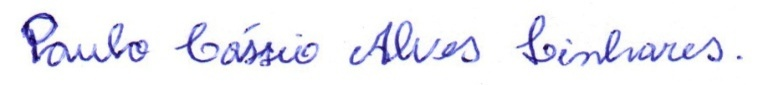 Paulo Cássio Alves Linhares.